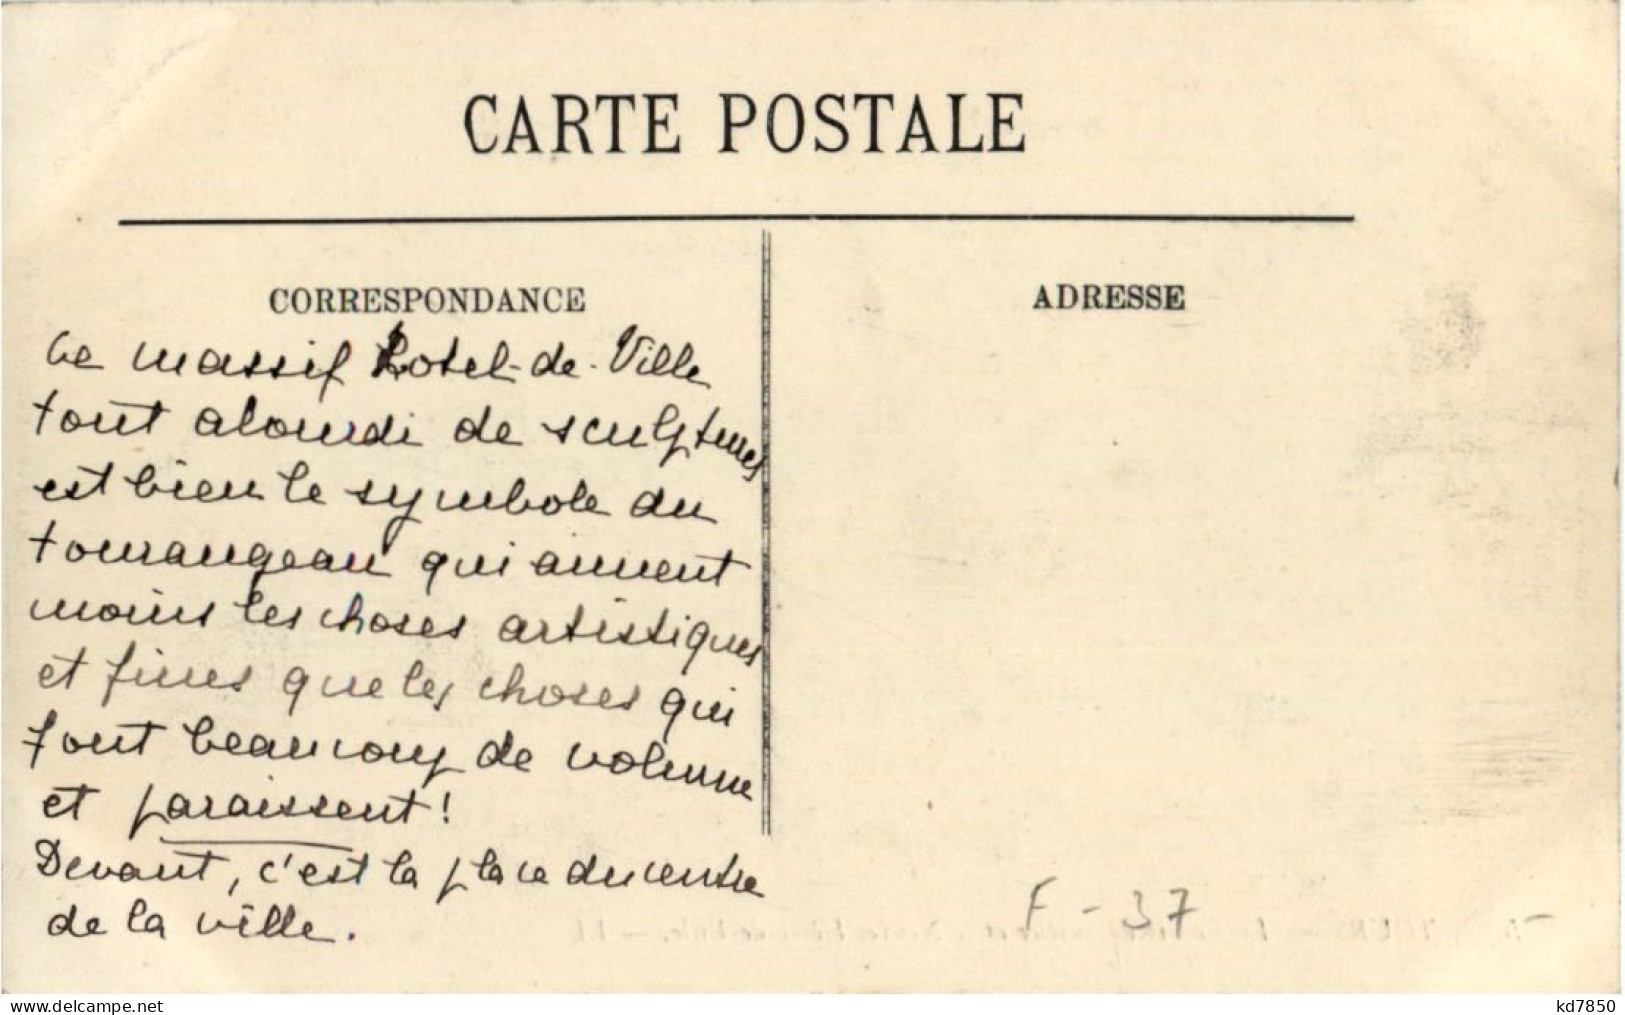 CARTE POSTALE
CORRESPONDANCE
ADRESSE
Ce massif Hotel-de-Ville
tout alourdi de sculptures
est bien le symbole du
tourangeau qui aiment
moins les choses artistiques
et fines que les choses qui
font beaucoup de volume
et paraissent!
Devant, c'est la place du centre
de la ville.
F - 37
www.delcampe.net
kd7850